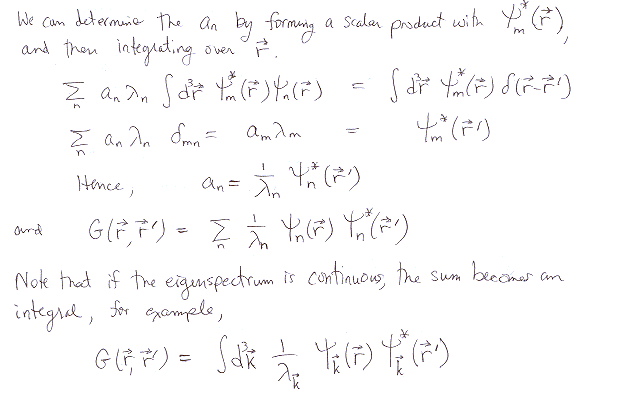 We can determine the an by forming a scalar product with Ψm*(r⃗),
and then integrating over r⃗.
Σn an λn ∫ d³r⃗ Ψm*(r⃗) Ψn(r⃗) = ∫ d³r⃗ Ψm*(r⃗) δ(r⃗-r⃗')
Σn an λn δmn = am λm = Ψm*(r⃗')
Hence, an = 1/λn Ψn*(r⃗')
and G(r⃗,r⃗') = Σn 1/λn Ψn(r⃗) Ψn*(r⃗')
Note that if the eigenspectrum is continuous, the sum becomes an
integral, for example,
G(r⃗,r⃗') = ∫ d³k⃗ 1/λk⃗ Ψk⃗(r⃗) Ψk⃗*(r⃗')